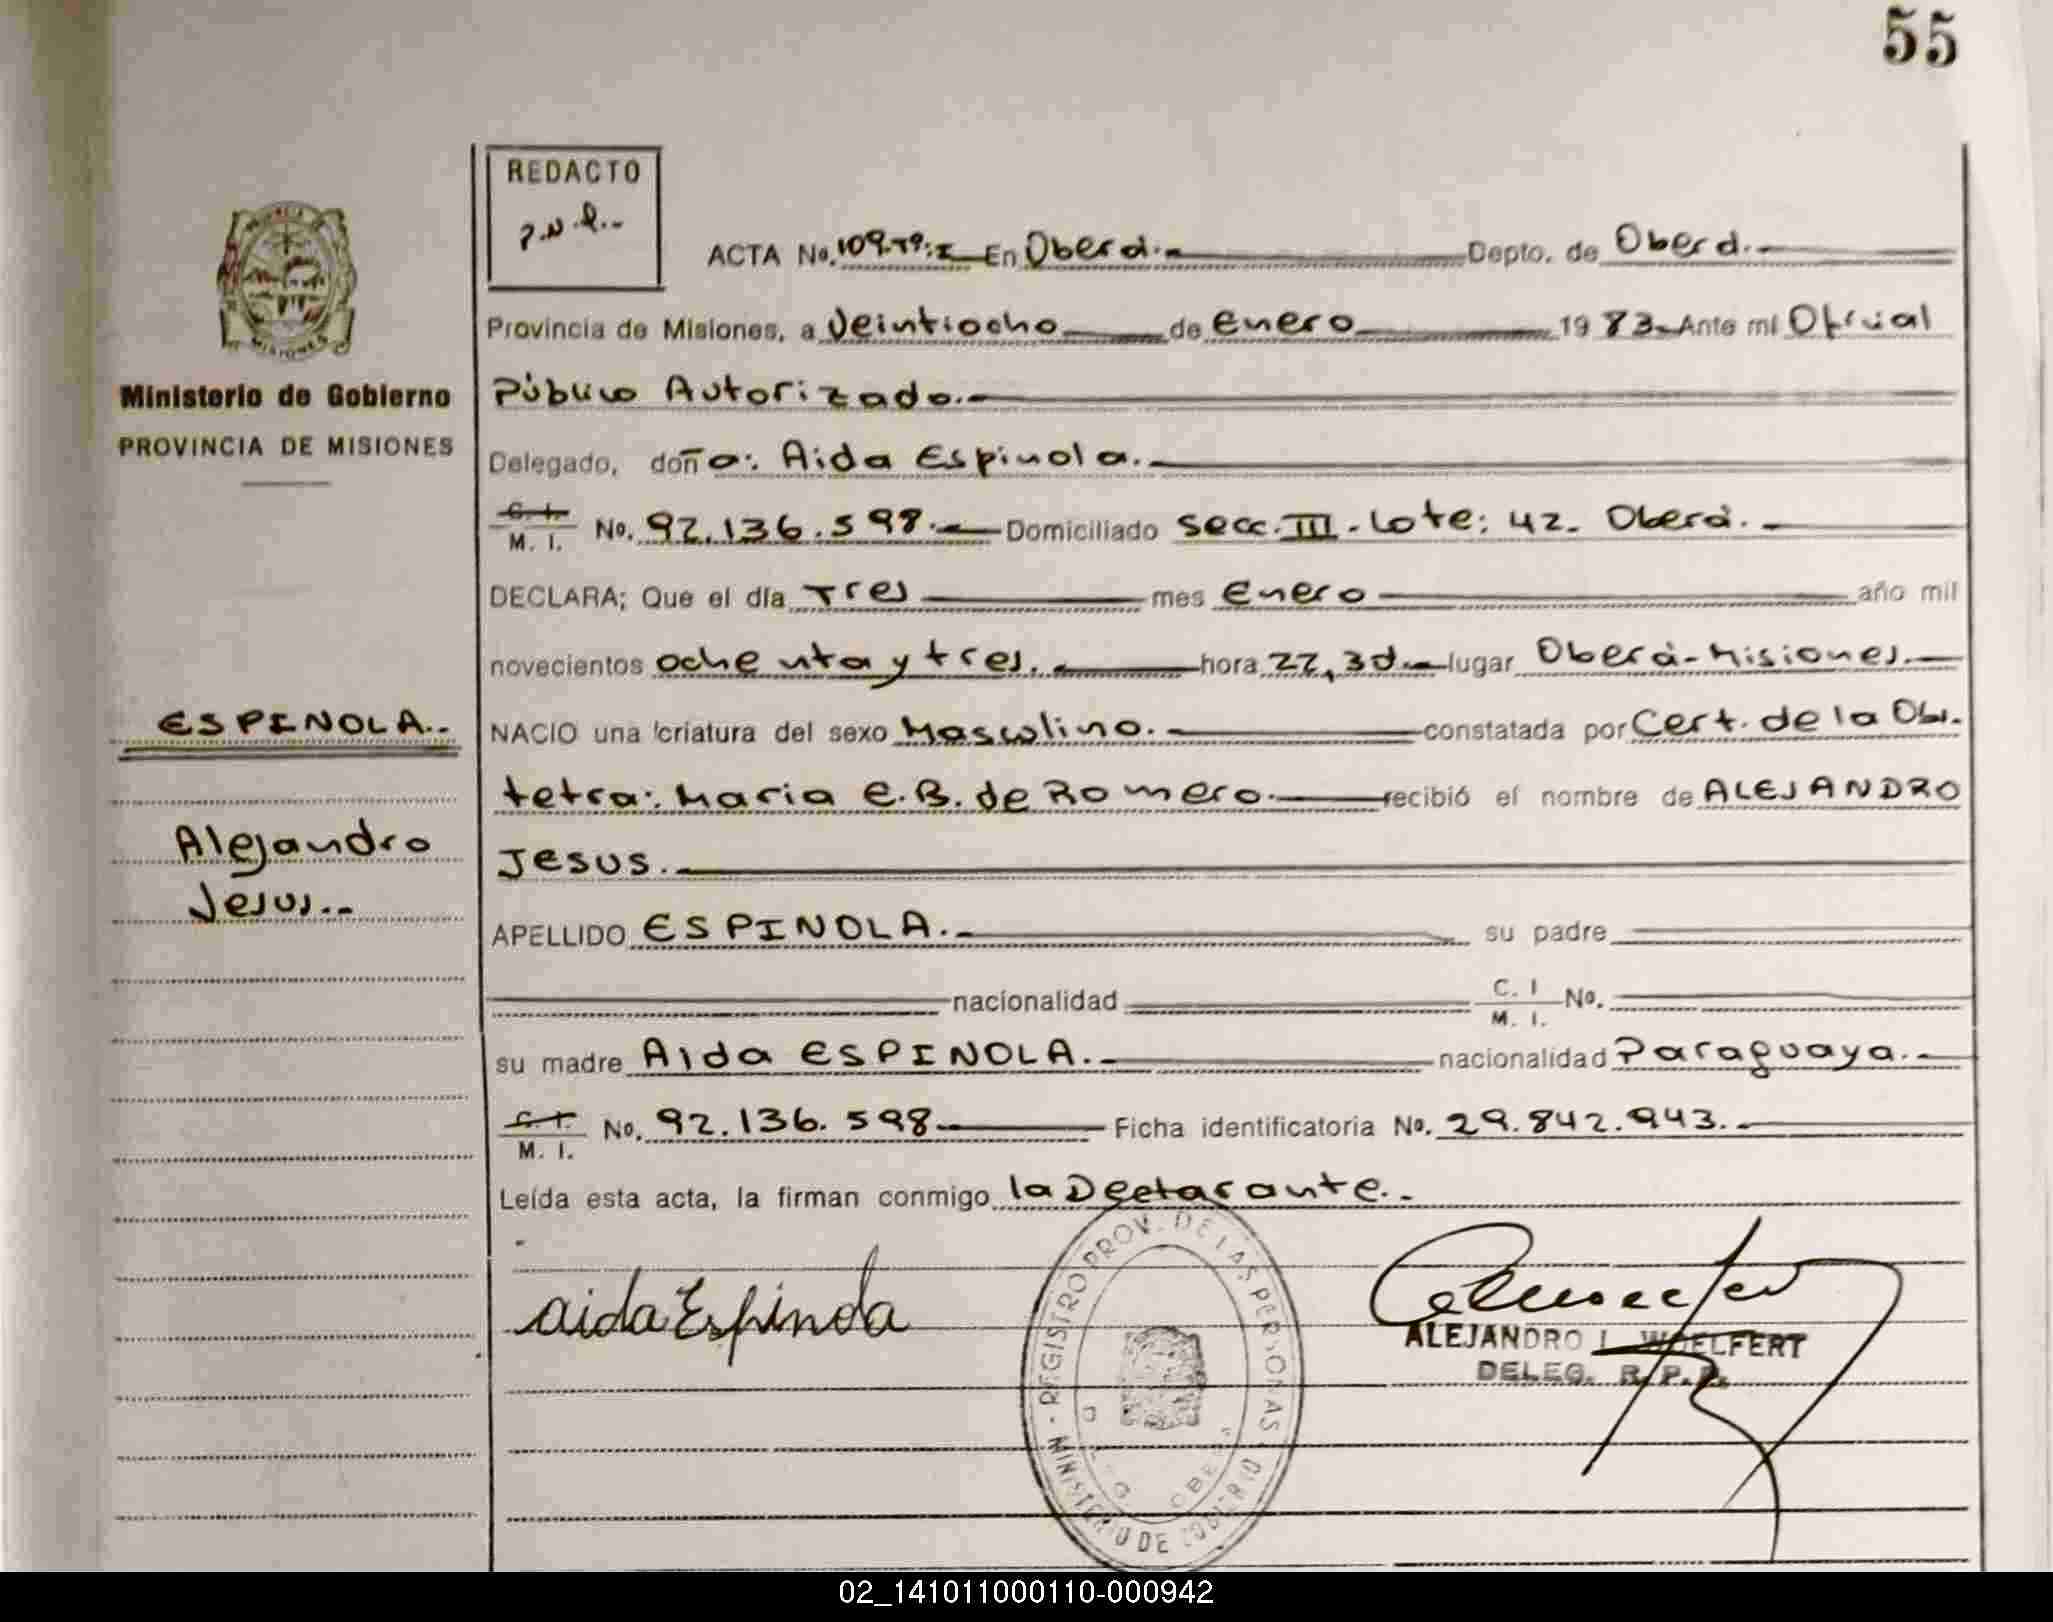 55
REDACTO
P.N.R.-
ACTA No. 109.Tº:I En Oberá.- Depto. de Oberá.-
Provincia de Misiones, a Veintiocho de Enero 1983.- Ante mí Oficial
Público Autorizado.-
Delegado, doña: Aida Espinola.-
C. I.
M. I. No. 92.136.598.- Domiciliado Secc. III - Lote: 42- Oberá.-
DECLARA; Que el día Tres mes Enero año mil
novecientos ochenta y tres.- hora 22,30.- lugar Oberá-Misiones.-
NACIO una criatura del sexo Masculino.- constatada por Cert. de la Obs.
tetra: Maria E.B. de Romero.- recibió el nombre de ALEJANDRO
JESUS.-
APELLIDO ESPINOLA.- su padre
nacionalidad C. I
M. I. No.
su madre Aida ESPINOLA.- nacionalidad Paraguaya.-
C. I.
M. I. No. 92.136.598- Ficha identificatoria No. 29.842.943.-
Leída esta acta, la firman conmigo la Declarante.-
Aida Espinola
ALEJANDRO L. WOELFERT
DELEG. R. P. P.
REGISTRO PROV. DE LAS PERSONAS
MINISTERIO DE GOBIERNO
MISIONES
Ministerio de Gobierno
PROVINCIA DE MISIONES
ESPINOLA.-
Alejandro
Jesus.-
02_141011000110-000942